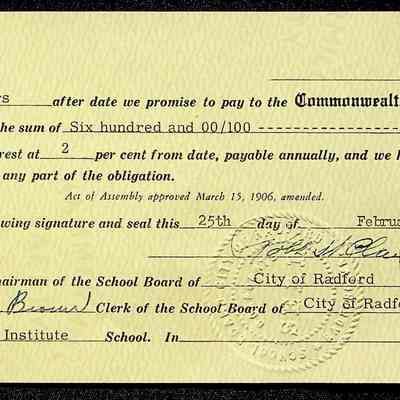 rs after date we promise to pay to the Commonwealt
he sum of Six hundred and 00/100 -----------------
rest at 2 per cent from date, payable annually, and we h
any part of the obligation.
Act of Assembly approved March 15, 1906, amended.
wing signature and seal this 25th day of Februa
hairman of the School Board of City of Radford
Clerk of the School Board of City of Radfo
Institute School. In